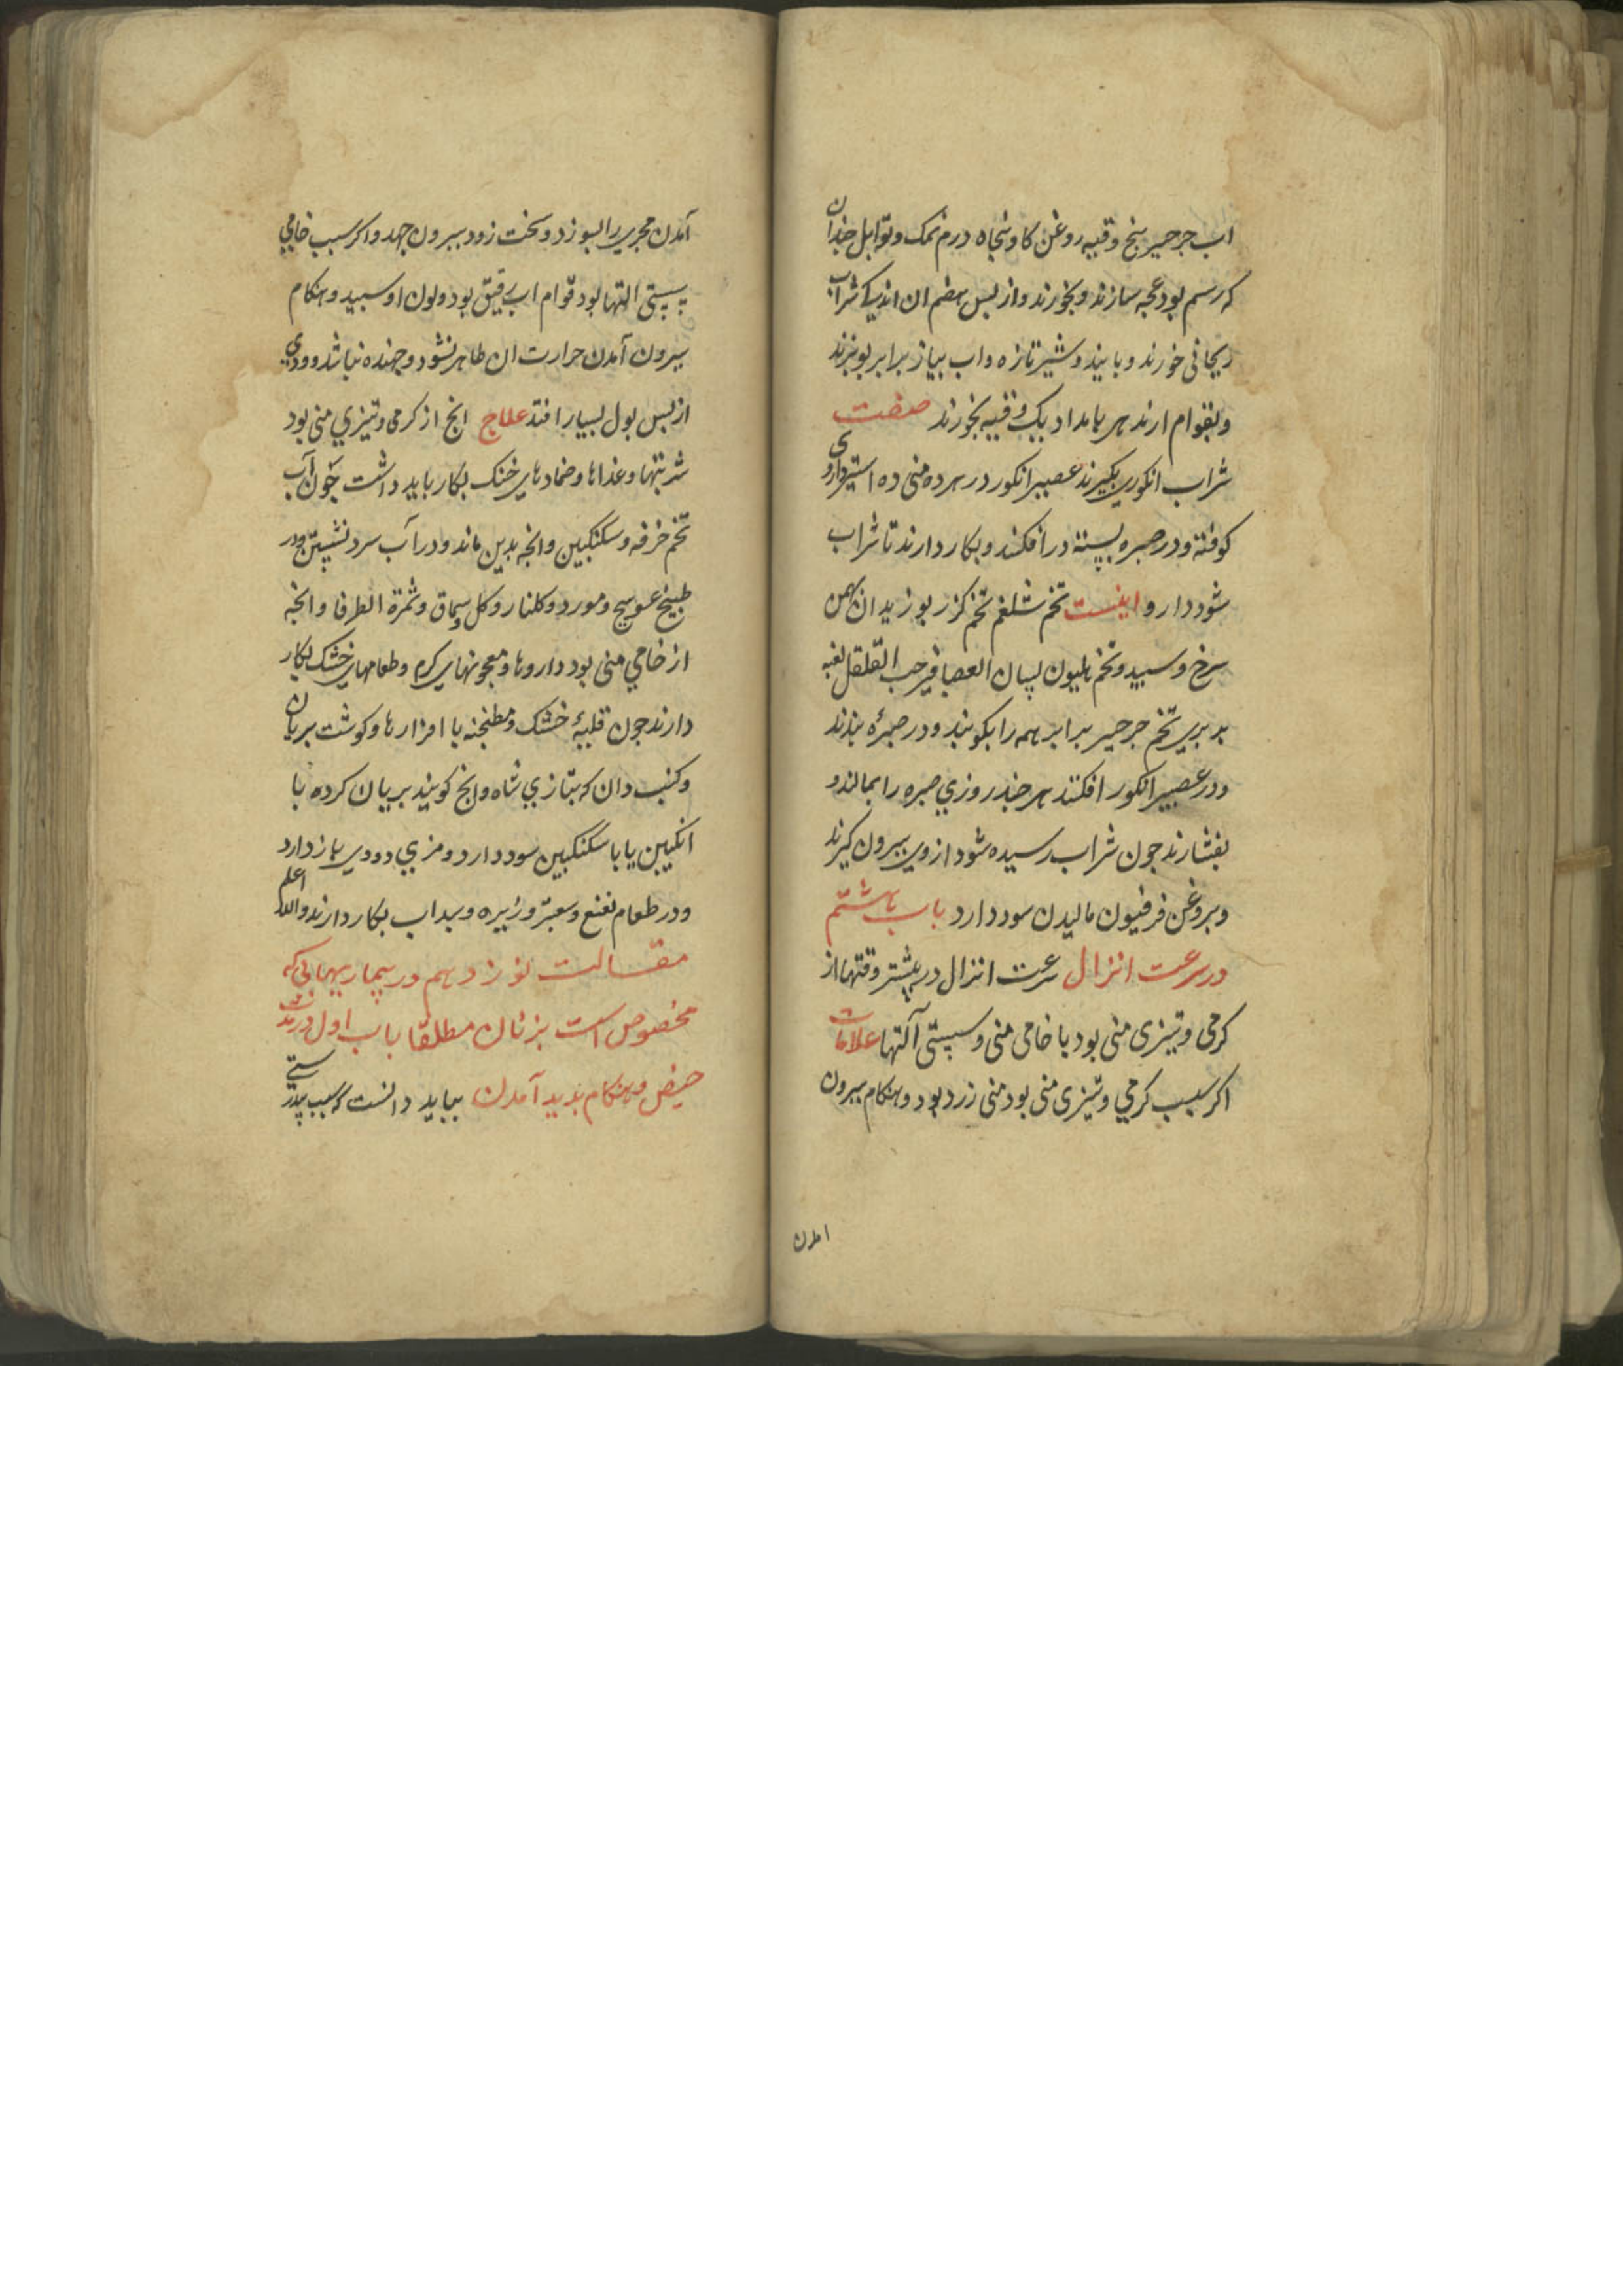 اب جرجیر پنج وقیه روغن کاو پنجاه درم نمک و توابل جندان
که رسم بود عجه سازند و بخورند و از پس هضم ان اندیک شراب
ریحانی خورند و یابند و شیر تازه و اب پیاز برابر بوپزند
و بقوام ارند هر بامداد یک وقیه بخورند صفت
شراب انکوری بکیرند عصیر انکور در هر ده منی ده استیر داروی
کوفته و در صره بسته در افکنند و بکار دارند تا شراب
شود دارو اینست تخم شلغم تخم کزر بوزیدان بهمن
سرخ و سپید و تخم هلیون لسان العصافیر حب القلقل لعبه
بربری تخم جرجیر برابر همه را بکوبند و در صرهٔ بندند
و در عصیر انکور افکنند هر جند روزی صره را بمالند و
بفشارند جون شراب رسیده شود از وی بیرون کیرند
و بروغن فرفیون مالیدن سود دارد باب هشتم
در سرعت انزال سرعت انزال در بیشتر وقتها از
کرمی و تیزی منی بود یا خامی منی و سستی آلتها علامات
اکر سبب کرمی و تیزی منی بود منی زرد بود و هنکام بیرون
امدن
آمدن مجری را بسوزد و سخت زود بیرون جهد و اکر سبب خامی
سستی التها بود قوام اب رقیق بود و لون او سپید و هنکام
بیرون آمدن حرارت ان ظاهر نشود و جهنده نباشد و ودی
از پس بول بسیار افتد علاج انج از کرمی و تیزی منی بود
شربتها و غذاها و ضمادهای خنک بکار باید داشت جون آب
تخم خرفه و سکنکبین و انجه بدین ماند و در آب سرد نشستن و در
طبیخ عوسج و مورد و کلنار و کل و سماق و ثمرة الطرفا و انجه
از خامی منی بود داروها و معجونهای کرم و طعامهای خشک بکار
دارند جون قلیهٔ خشک و مطنجنه با افزارها و کوشت بریان
و کنب دان که بتازی شاه دانج کویند بریان کرده با
انکبین یا با سکنکبین سود دارد و مزی و ودی باز دارد
و در طعام نعنع و سعتر و زیره و سداب بکار دارند والله اعلم
مقالت نوزدهم در بیماریهائی که
مخصوص است بزنان مطلقا باب اول در بند
حیض و هنکام بدید آمدن بباید دانست که سبب